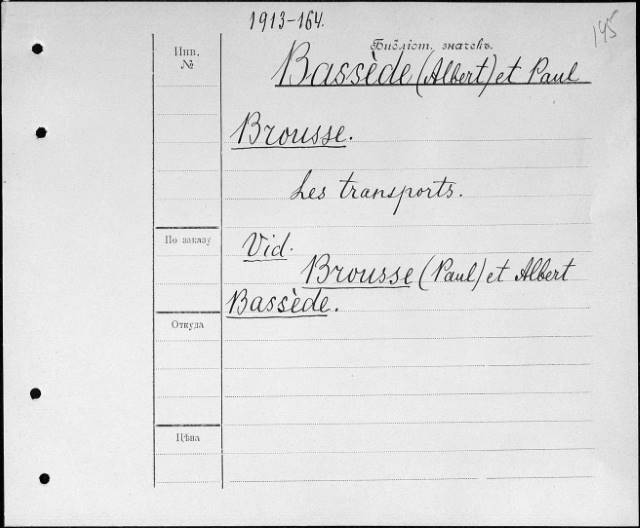 1913-164.
195
Инв.
№
Бібліот. значекъ.
Bassède (Albert) et Paul
Brousse.
Les transports.
По заказу
Vid.
Brousse (Paul) et Albert
Bassède.
Откуда
Цѣна